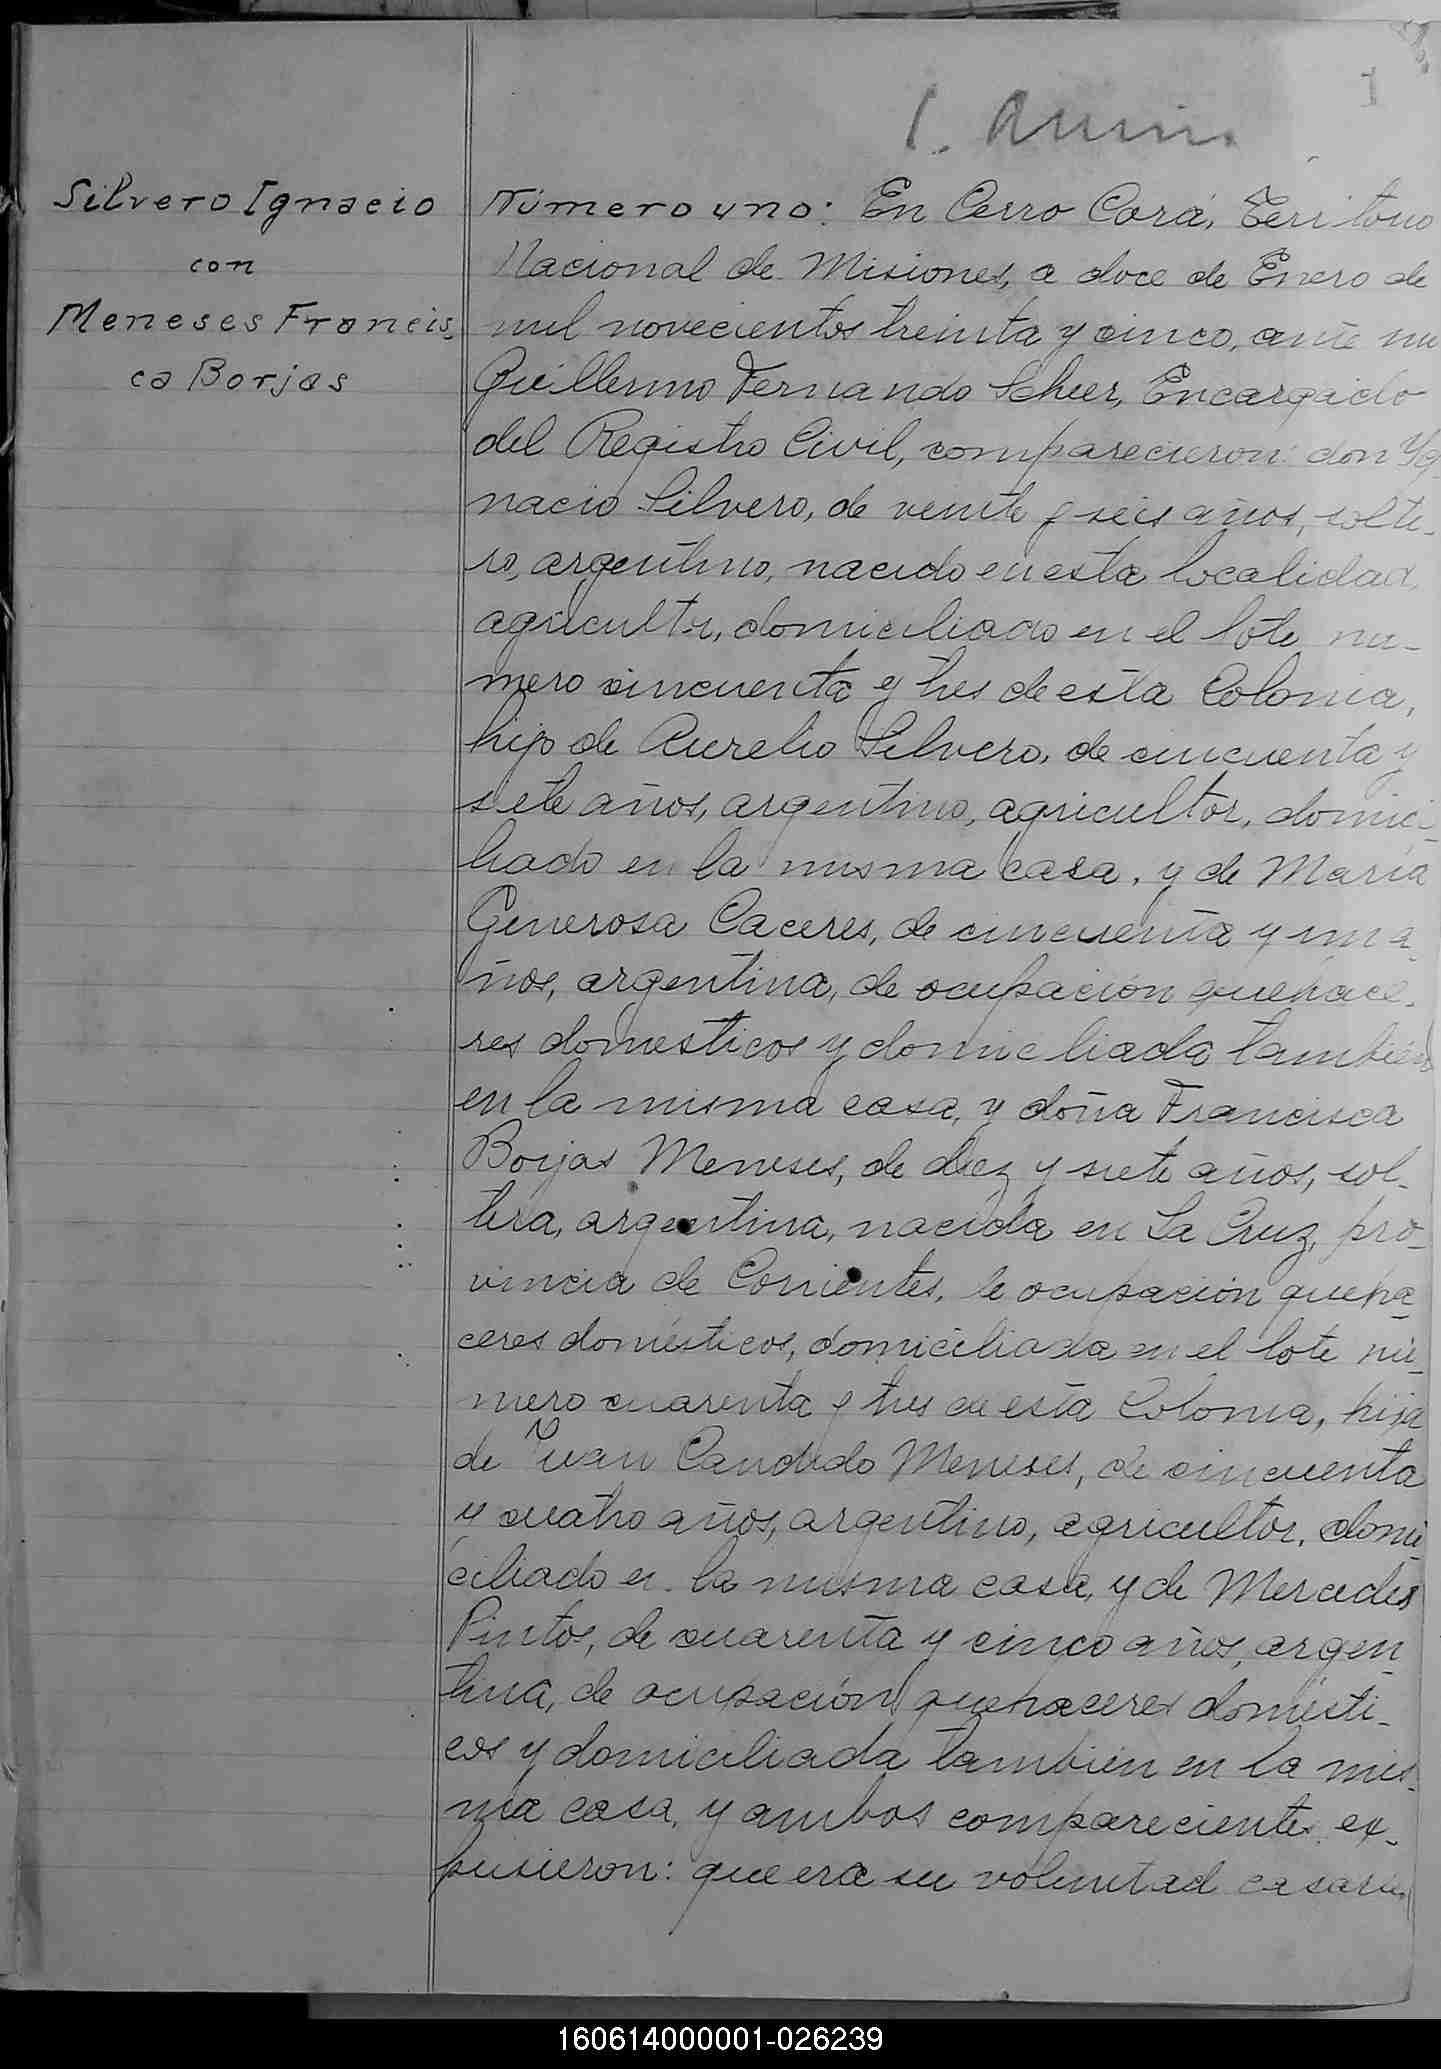 1
Silvero Ignacio
con
Meneses Francis-
ca Borjas
Número uno: En Cerro Corá, Territorio
Nacional de Misiones, a doce de Enero de
mil novecientos treinta y cinco, ante mi
Guillermo Fernando Scheer, Encargado
del Registro Civil, comparecieron: don Yg-
nacio Silvero, de veinte y seis años, solte-
ro, argentino, nacido en esta localidad,
agricultor, domiciliado en el lote nu-
mero cincuenta y tres de esta Colonia,
hijo de Aurelio Silvero, de cincuenta y
siete años, argentino, agricultor, domici-
liado en la misma casa, y de María
Generosa Caceres, de cincuenta y un a-
ños, argentina, de ocupación quehace-
res domesticos y domiciliada también
en la misma casa, y doña Francisca
Borjas Meneses, de diez y siete años, sol-
tera, argentina, nacida en La Cruz, pro-
vincia de Corrientes, de ocupación queha-
ceres domésticos, domiciliada en el lote nú-
mero cuarenta y tres de esta Colonia, hija
de Juan Candido Meneses, de cincuenta
y cuatro años, argentino, agricultor, domi-
ciliado en la misma casa, y de Mercedes
Pintos, de cuarenta y cinco años, argen-
tina, de ocupación quehaceres domésti-
cos y domiciliada también en la mis-
ma casa, y ambos comparecientes ex-
pusieron: que era su voluntad casarse,
160614000001-026239